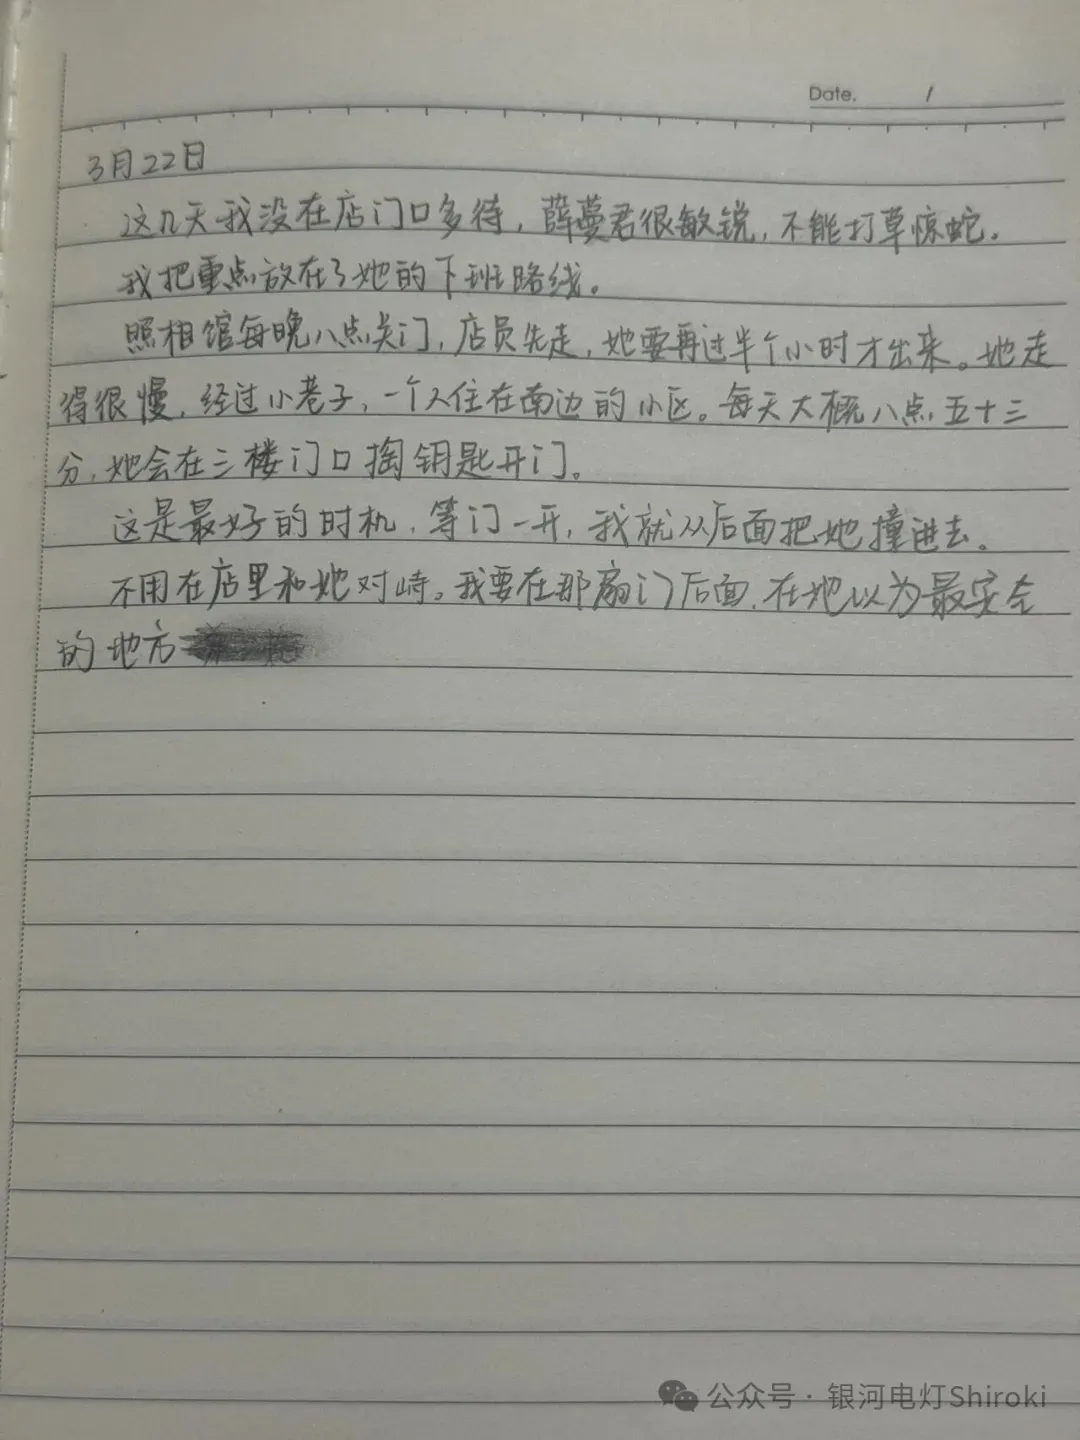 Date. /
3月22日
这几天我没在店门口多待，薛蔓君很敏锐，不能打草惊蛇。
我把重点放在了她的下班路线。
照相馆每晚八点关门，店员先走，她要再过半个小时才出来。她走
得很慢，经过小巷子，一个人住在南边的小区。每天大概八点五十三
分，她会在三楼门口掏钥匙开门。
这是最好的时机，等门一开，我就从后面把她撞进去。
不用在店里和她对峙。我要在那扇门后面，在她以为最安全
的地方
公众号·银河电灯Shiroki